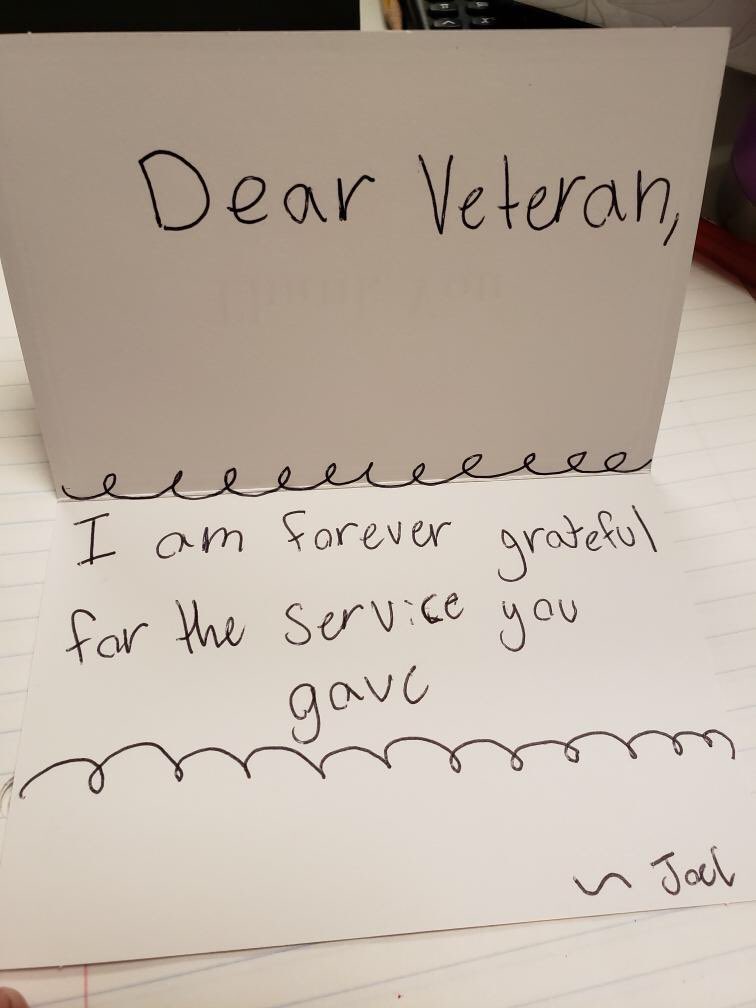 Dear Veteran,
I am forever grateful
for the service you
gave
~ Joel